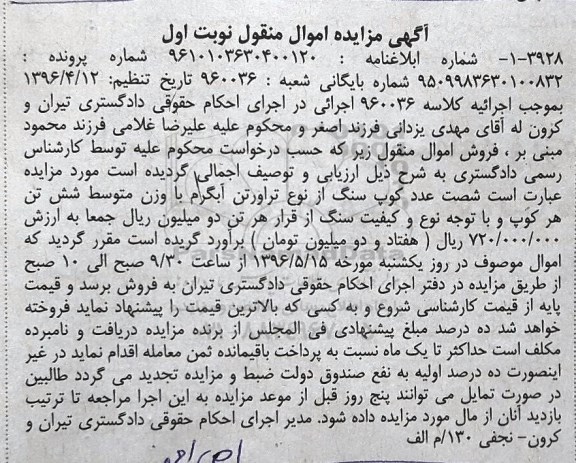 آگهی مزایده اموال منقول نوبت اول
۱-۳۹۲۸- شماره ابلاغنامه : ۹۶۱۰۱۰۳۶۳۰۴۰۰۱۲۰ شماره پرونده :
۹۵۰۹۹۸۳۶۳۰۱۰۰۸۳۲ شماره بایگانی شعبه : ۹۶۰۰۳۶ تاریخ تنظیم: ۱۳۹۶/۴/۱۲
بموجب اجرائیه کلاسه ۹۶۰۰۳۶ اجرائی در اجرای احکام حقوقی دادگستری تیران و
کرون له آقای مهدی یزدانی فرزند اصغر و محکوم علیه علیرضا غلامی فرزند محمود
مبنی بر ، فروش اموال منقول زیر که حسب درخواست محکوم علیه توسط کارشناس
رسمی دادگستری به شرح ذیل ارزیابی و توصیف اجمالی گردیده است مورد مزایده
عبارت است شصت عدد کوپ سنگ از نوع تراورتن آبگرم با وزن متوسط شش تن
هر کوپ و با توجه نوع و کیفیت سنگ از قرار هر تن دو میلیون ریال جمعا به ارزش
۷۲۰/۰۰۰/۰۰۰ ریال ( هفتاد و دو میلیون تومان ) برآورد گریده است مقرر گردید که
اموال موصوف در روز یکشنبه مورخه ۱۳۹۶/۵/۱۵ از ساعت ۹/۳۰ صبح الی ۱۰ صبح
از طریق مزایده در دفتر اجرای احکام حقوقی دادگستری تیران به فروش برسد و قیمت
پایه از قیمت کارشناسی شروع و به کسی که بالاترین قیمت را پیشنهاد نماید فروخته
خواهد شد ده درصد مبلغ پیشنهادی فی المجلس از برنده مزایده دریافت و نامبرده
مکلف است حداکثر تا یک ماه نسبت به پرداخت باقیمانده ثمن معامله اقدام نماید در غیر
اینصورت ده درصد اولیه به نفع صندوق دولت ضبط و مزایده تجدید می گردد طالبین
در صورت تمایل می توانند پنج روز قبل از موعد مزایده به این اجرا مراجعه تا ترتیب
بازدید آنان از مال مورد مزایده داده شود. مدیر اجرای احکام حقوقی دادگستری تیران و
کرون- نجفی ۱۳۰/م الف